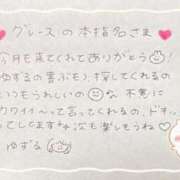 グレースの本指名さま
今月も来てくれてありがとう!
ゆずるの喜ぶもの探してくれるの
いつもうれしいの 不意に
カワイイ〜って言ってくれるの、ドキッ
としてしてます 次も楽しもうね♡
ゆずる